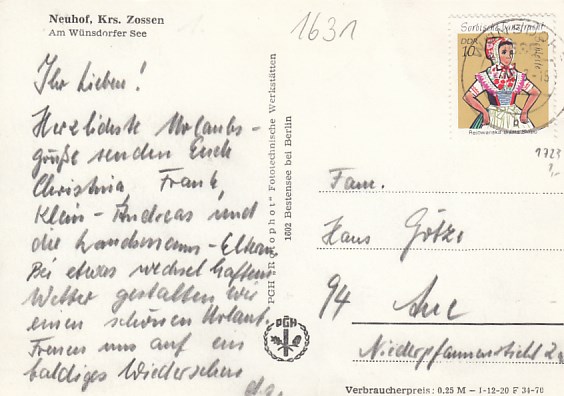 Neuhof, Krs. Zossen
Am Wünsdorfer See
1631
Ihr Lieben!
Herzlichste Urlaubs-
grüße senden Euch
Christina, Frank,
Klein-Andreas und
die Eltern
Bei etwas wechselhaftem
Wetter gestalten wir
einen schönen Urlaub.
Freuen uns auf ein
baldiges Wiedersehen
PGH „Rotophot“ Fototechnische Werkstätten
1602 Bestensee bei Berlin
PGH
Sorbische Tanztracht
DDR
10
1723
Fam.
Hans Götze
94 Aue
Niederpfannenstiel
Verbraucherpreis: 0.25 M - I-12-20 F 34-70